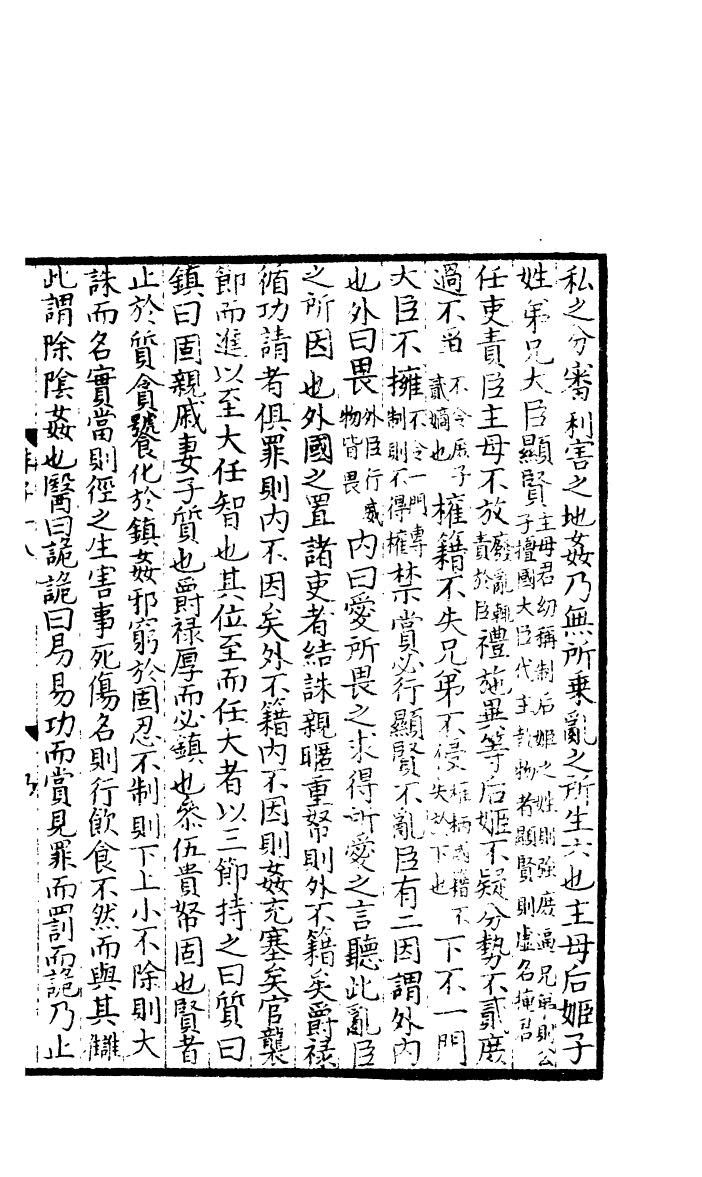 私之分審利害之地姦乃無所乗亂之所生六也主母后姬子
姓弟兄大臣顯賢主母君幼稱制后姬之姓則强庶逼兄弟則公子擅國大臣代主
任吏責臣主母不放廢亂輒責於臣禮施異等后姬不疑分勢不貳庶
過不當不令庶子貳嫡也權籍不失兄弟不侵下不一門
大臣不擁不令一門專制則不得擁禁賞必行顯賢不亂臣有二因謂外内
也外曰畏外臣行威物皆畏内曰愛所畏之求得所愛之言聽此亂臣
之所因也外國之置諸吏者結誅親暱重帑則外不籍矣爵禄
循功請者俱罪則内不因矣外不籍内不因則姦充塞矣官襲
節而進以至大任智也其位至而任大者以三節持之曰質曰
鎮曰固親戚妻子質也爵禄厚而必鎮也叅伍貴帑固也賢者
止於質貪饕化於鎮姦邪窮於固忍不制則下上小不除則大
誅而名實當則徑之生害事死傷名則行飲食不然而與其讎
此謂除陰姦也醫曰詭詭曰易易功而賞見罪而罰而詭乃止